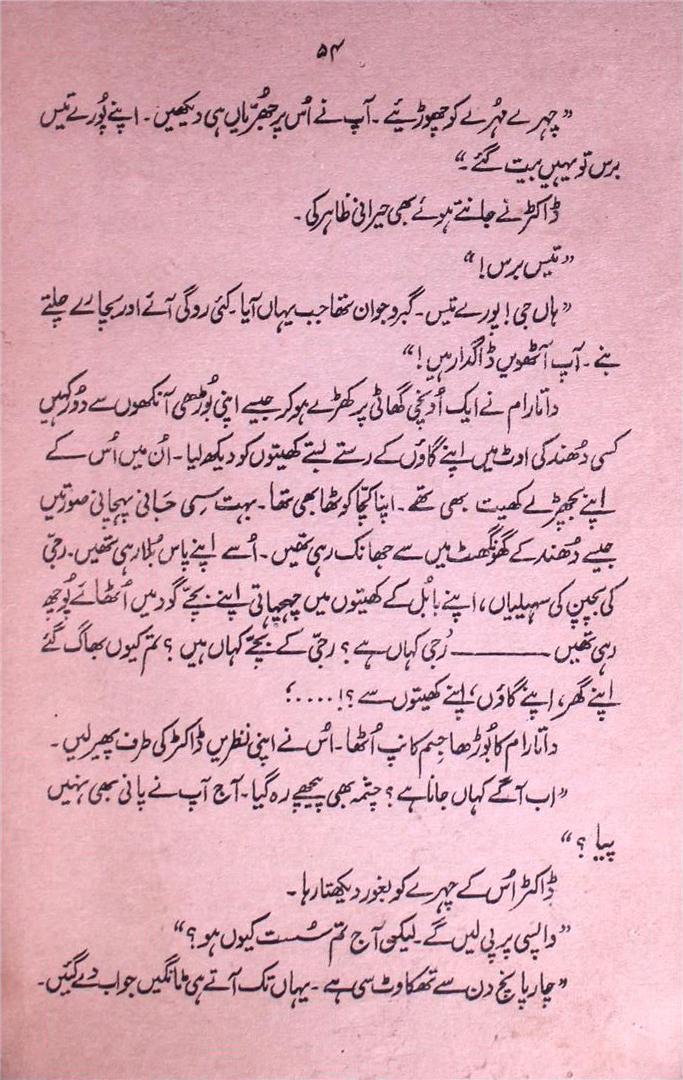 ۵۴
”چہرے مہرے کو چھوڑیئے۔ آپ نے اُس پر جھُرّیاں ہی دیکھیں۔ اپنے پُورے تیس
برس تو یہیں بیت گئے۔“
ڈاکٹر نے جانتے ہوئے بھی حیرانی ظاہر کی۔
”تیس برس!“
”ہاں جی! پورے تیس۔ گبرو جوان تھا جب یہاں آیا۔ کئی روگی آئے اور بچارے چلتے
بنے۔ آپ آٹھویں ڈاگدار ہیں!“
داتا رام نے ایک اُونچی گھاٹی پر کھڑے ہو کر جیسے اپنی بُوڑھی آنکھوں سے دُور کہیں
کسی دُھند کی اوٹ میں اپنے گاؤں کے رستے بستے کھیتوں کو دیکھ لیا۔ اُن میں اُس کے
اپنے بچھڑے کھیت بھی تھے۔ اپنا کچّا کوٹھا بھی تھا۔ بہت سی جانی پہچانی صورتیں
جیسے دُھند کے گھونگھٹ میں سے جھانک رہی تھیں۔ اُسے اپنے پاس بُلا رہی تھیں۔ رجّی
کی بچپن کی سہیلیاں، اپنے بابُل کے کھیتوں میں چہچہاتی اپنے بچّے گود میں اُٹھائے پُوچھ
رہی تھیں ــــــــ رُجی کہاں ہے؟ رجیّ کے بچّے کہاں ہیں؟ تم کیوں بھاگ گئے
اپنے گھر، اپنے گاؤں، اپنے کھیتوں سے؟!....؛
داتا رام کا بُوڑھا جِسم کانپ اُٹھا۔ اس نے اپنی نظریں ڈاکٹر کی طرف پھیر لیں۔
”اب آگے کہاں جانا ہے؟ چشمہ بھی پیچھے رہ گیا۔ آج آپ نے پانی بھی نہیں
پیا؟“
ڈاکٹر اُس کے چہرے کو بغور دیکھتا رہا۔
”واپسی پر پی لیں گے۔ لیکن آج تم سُست کیوں ہو؟“
”چار پانچ دن سے تھکاوٹ سی ہے۔ یہاں تک آتے ہی ٹانگیں جواب دے گئیں۔